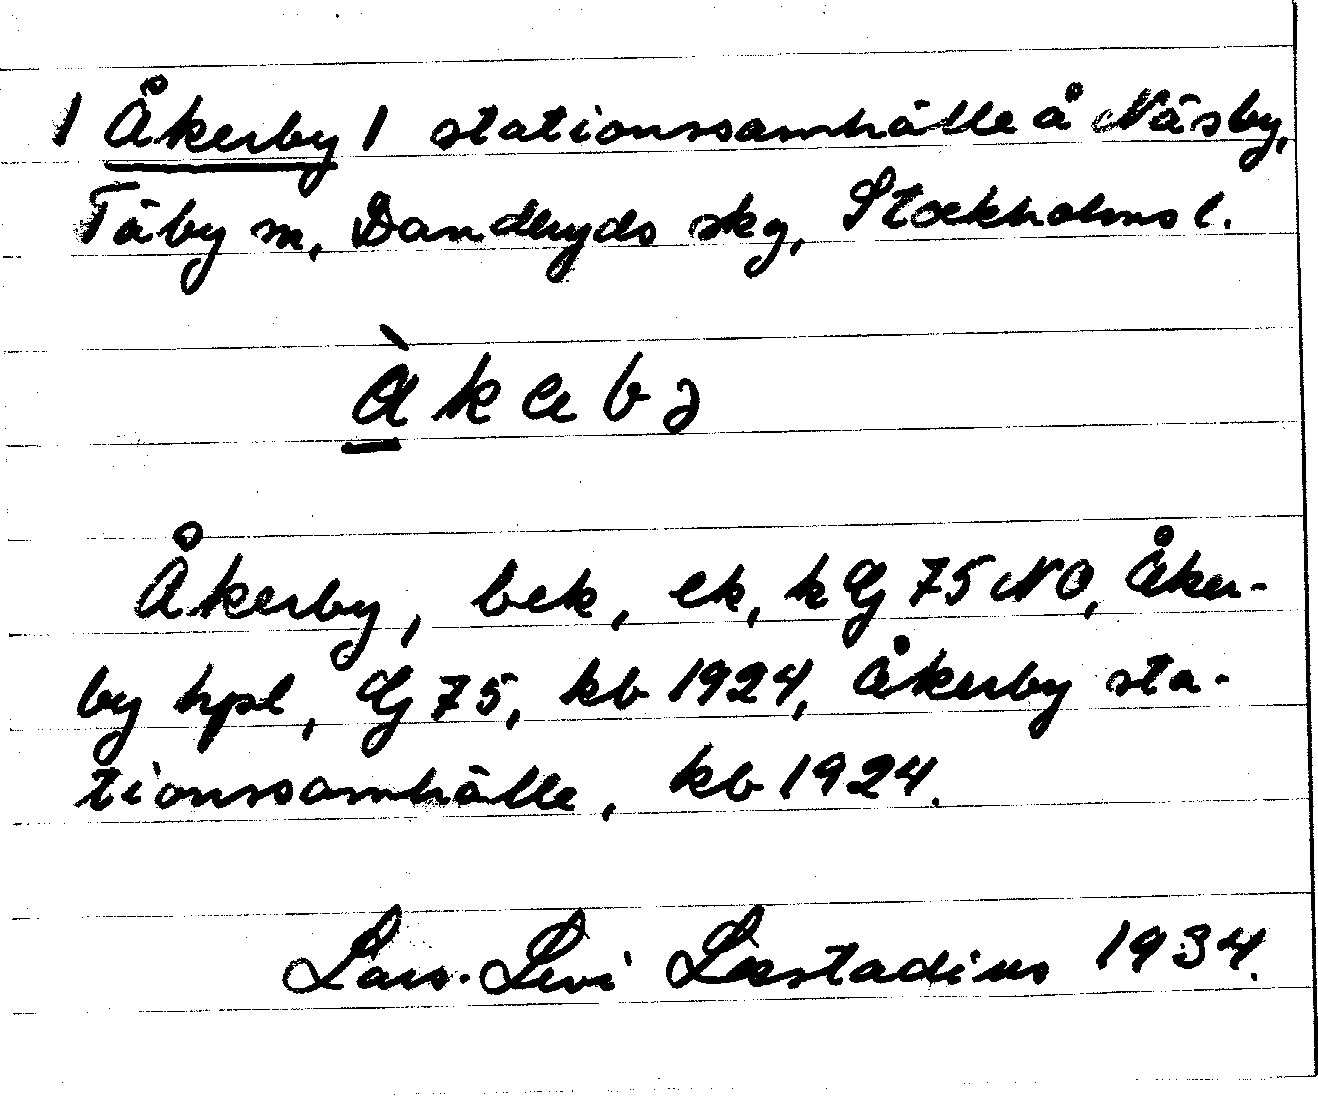 1 Åkerby 1 stationssamhälle å Näsby,
Täby sn, Danderyds skg, Stockholms l.
Åkerby, bek, ek, k Gj 75 NO, Åker-
by hpl, Gj 75, kb 1924, Åkerby sta-
tionssamhälle, kb 1924.
Lars-Levi Læstadius 1934.